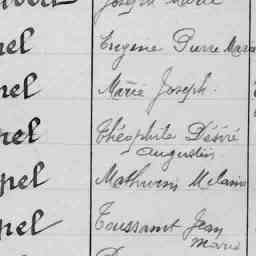 Joseph
nel Eugene Pierre Marie
nel Marie Joseph.
rel Théophile Désiré
Augustin
pel Mathurin
pel Toussaint Jean
Marie